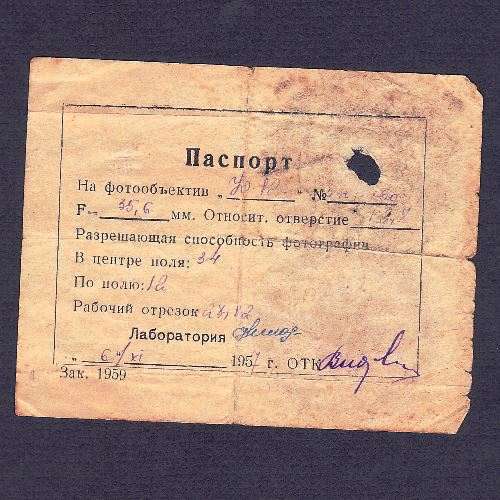 Паспорт
На фотообъектив „ " №
F= 35,6 мм. Относит. отверстие
Разрешающая способность фотографич.
В центре поля: 34
По полю: 18
Рабочий отрезок 27,12
Лаборатория
„ 6 " XI 1957 г. ОТК
Зак. 1959